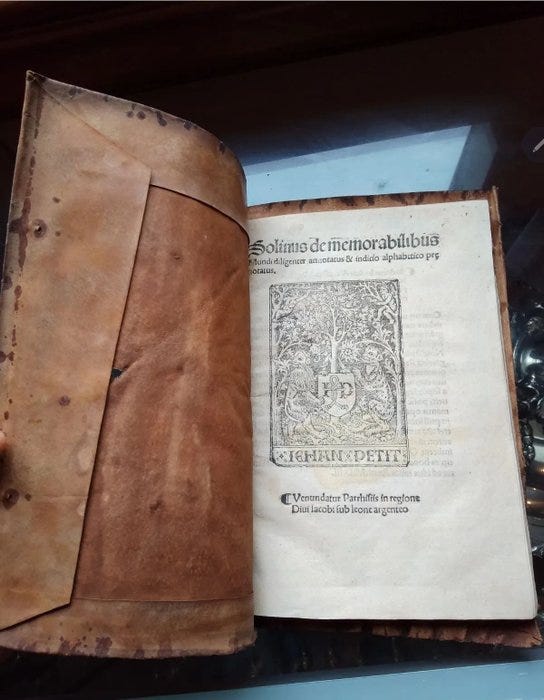 Solinus de mēmorabilibus
Mundi diligenter annotatus & indicio alphabetico prę
notatus.
IEHAN PETIT
¶ Venundatur Parrhisiis in regione
Diui Iacobi sub leone argenteo